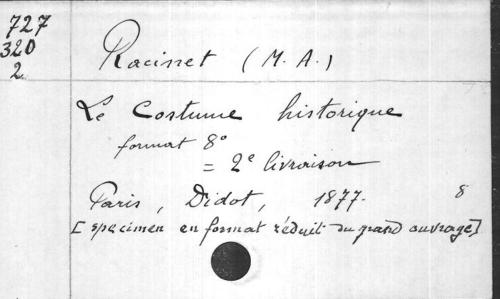 727
320
2
Racinet (M. A.)
Le Costume historique
format 8°
= 2e livraison
Paris, Didot, 1877. 8
[specimen en format réduit du grand ouvrage]